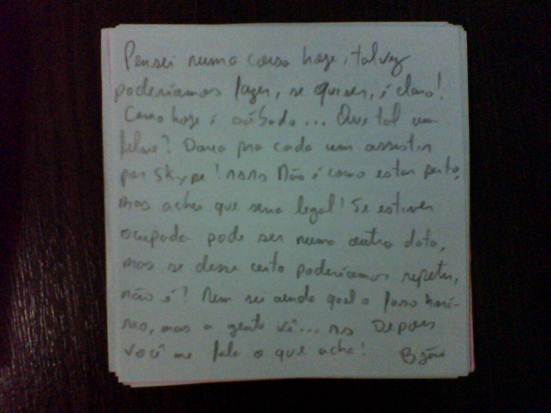 Pensei numa coisa hoje, talvez
poderíamos fazer, se quiser, é claro!
Como hoje é sábado... Que tal um
filme? Daria pra cada um assistir
por Skype! rsrs Não é como estar perto,
mas achei que seria legal! Se estiver
ocupada pode ser numa outra data,
mas se desse certo poderíamos repetir,
não é? Nem sei ainda qual o fuso horá-
rio, mas a gente vê... rs Depois
você me fala o que acha!